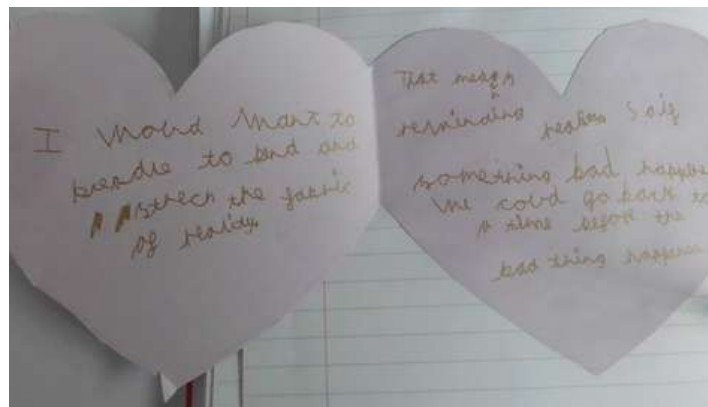 I would want to
beable to bend and
strech the fabric
of reality.
That means
reminding realiese S o if
something bad happene
we covd go back to
a time before the
bad thing happene